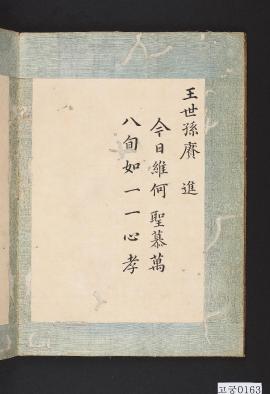 王世孫賡 進
今日維何聖慕萬
八旬如一一心孝
고궁0163